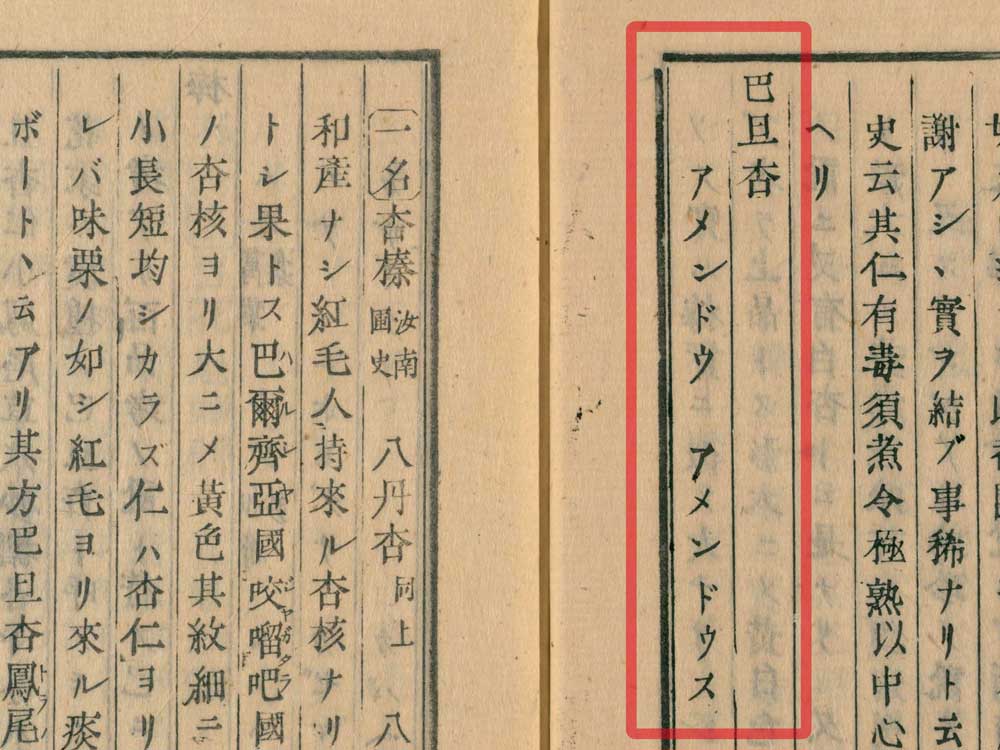 謝アシヽ實ヲ結ブ事稀ナリト云
史云其仁有毒須煮令極熟以中心
ヘリ
巴旦杏
アメンドウ アメンドウス
一名 杏榛 汝南圃史 八丹杏 同上 八
和産ナシ紅毛人持來ル杏核ナリ
トシ果トス巴爾齊亞國咬𠺕吧國
ノ杏核ヨリ大ニメ黃色其紋細ニ
小長短均シカラズ仁ハ杏仁ヨリ
レバ味栗ノ如シ紅毛ヨリ來ル痰
ボートヽ云アリ其方巴旦杏鳳尾